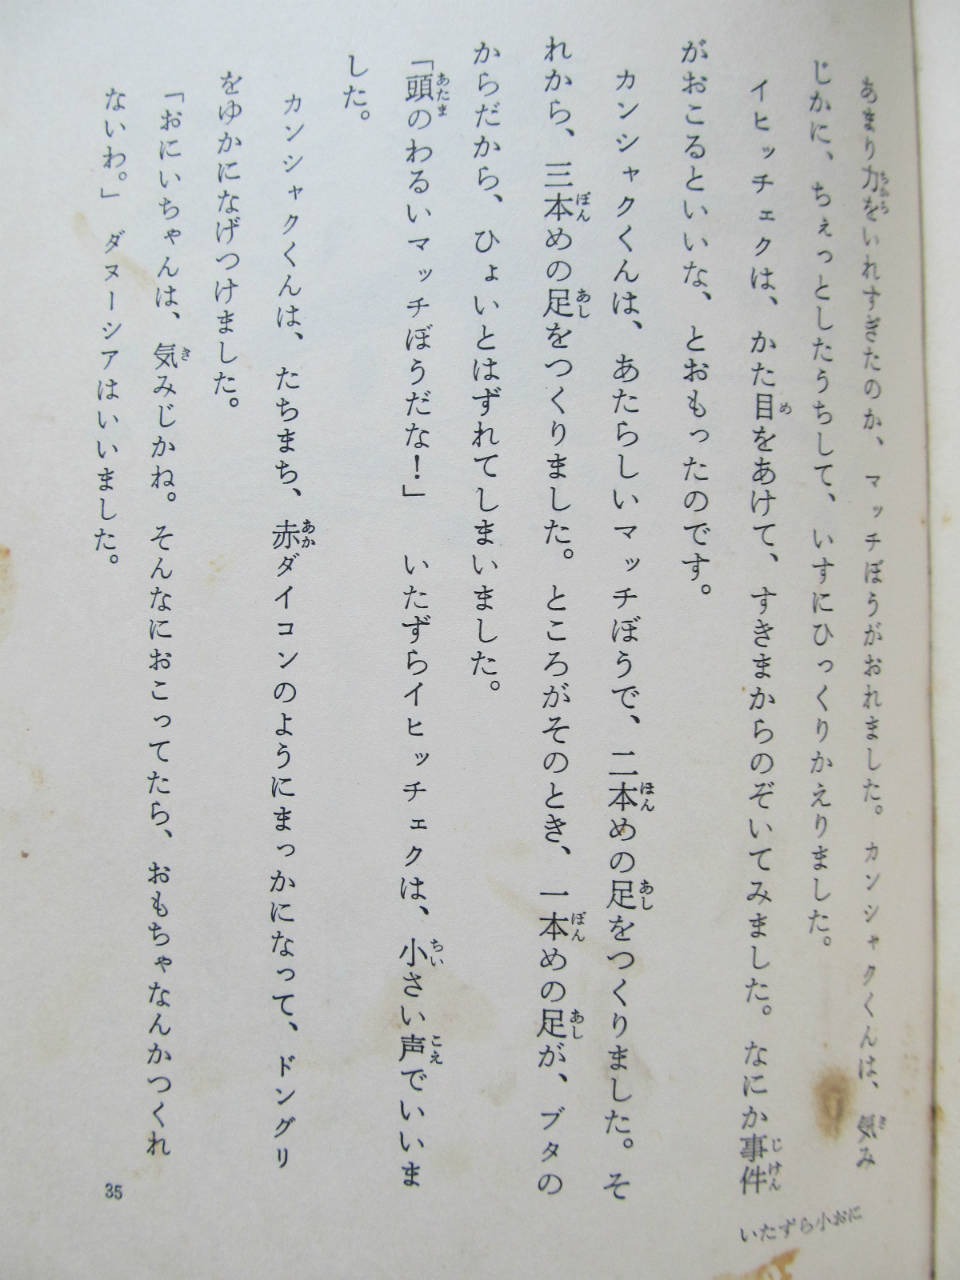 あまり力をいれすぎたのか、マッチぼうがおれました。カンシャクくんは、気み
じかに、ちぇっとしたうちして、いすにひっくりかえりました。
イヒッチェクは、かた目をあけて、すきまからのぞいてみました。なにか事件
がおこるといいな、とおもったのです。
カンシャクくんは、あたらしいマッチぼうで、二本めの足をつくりました。そ
れから、三本めの足をつくりました。ところがそのとき、一本めの足が、ブタの
からだから、ひょいとはずれてしまいました。
「頭のわるいマッチぼうだな！」　いたずらイヒッチェクは、小さい声でいいま
した。
カンシャクくんは、たちまち、赤ダイコンのようにまっかになって、ドングリ
をゆかになげつけました。
「おにいちゃんは、気みじかね。そんなにおこってたら、おもちゃなんかつくれ
ないわ。」　ダヌーシアはいいました。
いたずら小おに
35